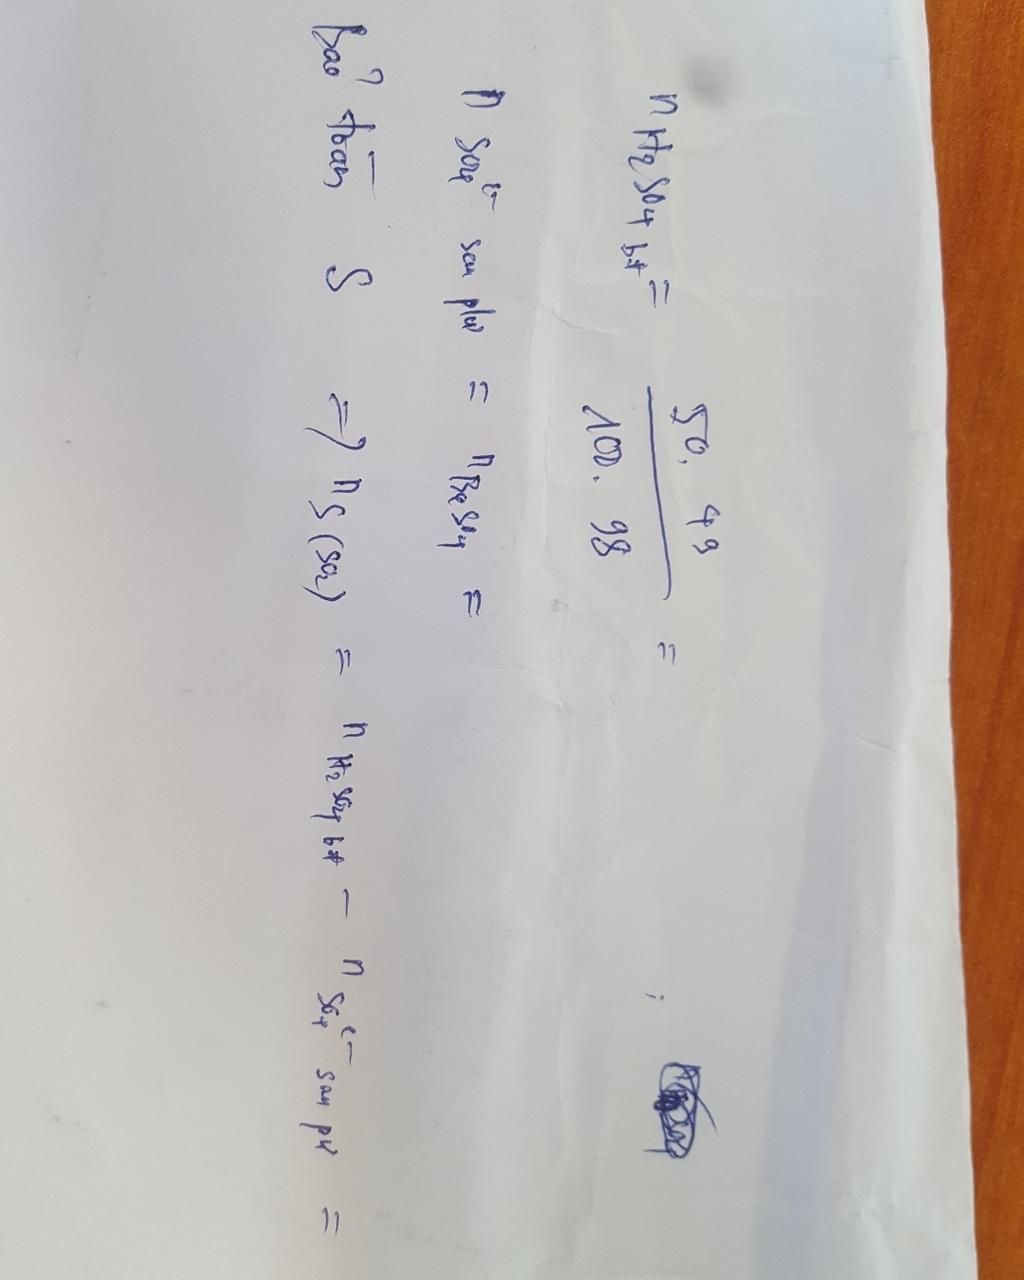 n H₂SO₄ bđ = 50. 49 / 100. 98 =
n SO₄²⁻ sau pư = n BaSO₄ =
bảo toàn S => n S (SO₂) = n H₂SO₄ bđ - n SO₄²⁻ sau pư =